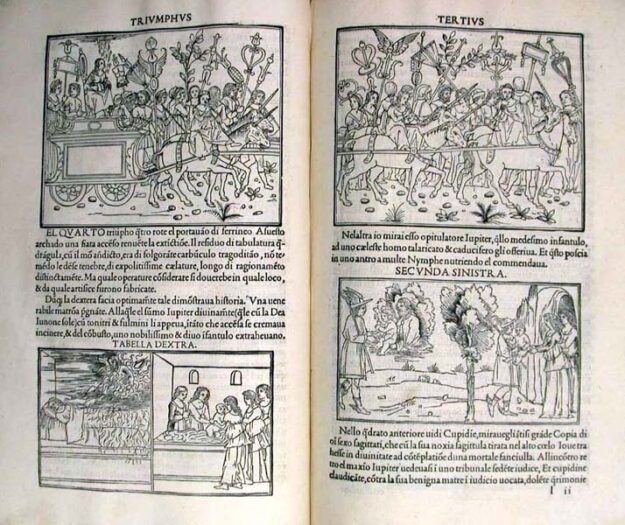 TRIVMPHVS
EL QVARTO triũpho q̃tro rote el portauão di ferrineo Asuesto
archado una fiata accẽso renuẽte la extĩctiõe. Il residuo di tabulatura q̃-
drãgula, cũ il mõ ãndicto, era di folgorãte carbũculo tragoditão, nõ te-
mẽdo le dẽse tenebre, di expolitissime cælature, longo di ragionamẽto
distinctamẽte. Ma quale operature cõsiderare si douerebe in quale loco,
& da quale artifice furono fabricate.
Dũq; la dextera facia optimamẽte tale dimõstraua historia. Vna uene
rabile matrõa p̃gnãte. Alla q̃le el sũmo Iupiter diuinamẽte (q̃le cũ la Dea
Iunone sole) cũ tonitri & fulmini li appeua, itãto che accẽsa se cremaua
in cinere, & del cõbusto, uno nobilissimo & diuo infantulo extraheuano.
TABELLA DEXTRA.
TERTIVS
Nelaltra io mirai esso opitulatore Iupiter, q̃llo medesimo infantulo,
ad uno cæleste homo talaricato & caducifero gli offeriua. Et q̃sto poscia
in uno antro a multe Nymphe nutriendo el commendaua.
SECVNDA SINISTRA.
Nello q̃drato anteriore uidi Cupidie, mirauegli stisi grãde Copia di
ol sexo sagittati, che cũ la sua noxia sagittula tirata nel alto cœlo Ioue tra
hesse in diuinitate ad cõtẽplatiõe duna mortale fanciulla. Al incõtro
rel maxĩo Iupiter uedeuasi i uno tribunale sedẽte iudice, Et cupidine
claudicãte, cõtra la sua benigna matre i iudicio uocata, dolẽte q̃rimonie
l ii